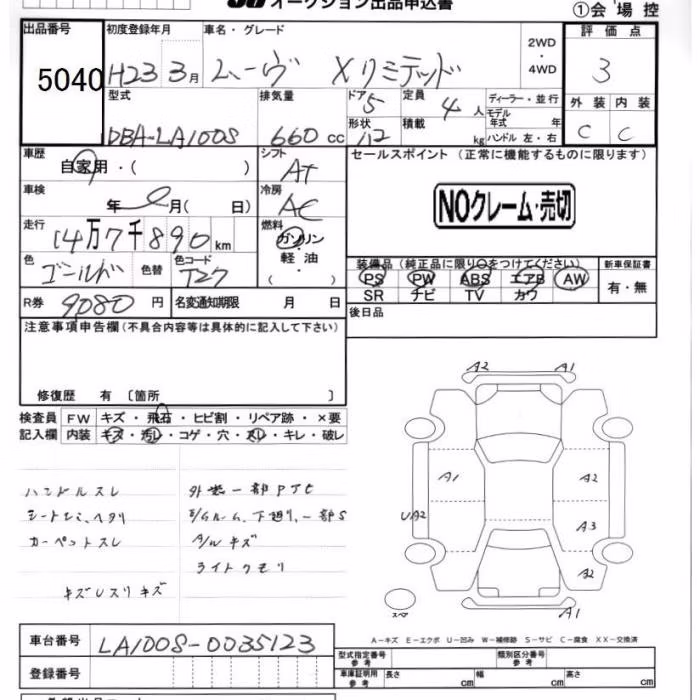 オークション出品申込書
①会場控
出品番号 初度登録年月 車名・グレード 2WD・4WD 評価点
5040 H23 3月 ムーヴ Xリミテッド 3
型式 排気量 ドア 5 定員 4人 ディーラー・並行 外装 内装
形状 積載 kg モデル年式 年
DBA-LA100S 660cc ハンドル 左・右 C C
車歴 シフト セールスポイント (正常に機能するものに限ります)
自家用・( ) AT
車検 冷房 NOクレーム・売切
年 月( 日) AC
走行 燃料
14万7千890km ガソリン・軽油・( )
色 色替 色コード 装備品 (純正品に限り○をつけてください) 新車保証書
ゴールド T27 PS PW ABS エアB AW 有・無
SR ナビ TV カワ
R券 9080円 名変通知期限 月 日 後日品
注意事項申告欄(不具合内容等は具体的に記入して下さい)
修復歴 有 〔箇所 〕
検査員 FW キズ・飛石・ヒビ割・リペア跡・×要
記入欄 内装 キズ・汚レ・コゲ・穴・スレ・キレ・破レ
A2 A1
ハンドルスレ 外装一部
A1 A2
シート 下廻り、一部S
UA2 A3
カーペットスレ A/Wキズ
ライトクモリ A2
キズ スリキズ
スペア A1
A－キズ E－エクボ U－凹み W－補修跡 S－サビ C－腐食 XX－交換済
車台番号 LA100S-0035123 型式指定番号 参考 類別区分番号 参考
登録番号 車庫証明用 参考 長さ cm 幅 cm 高さ cm